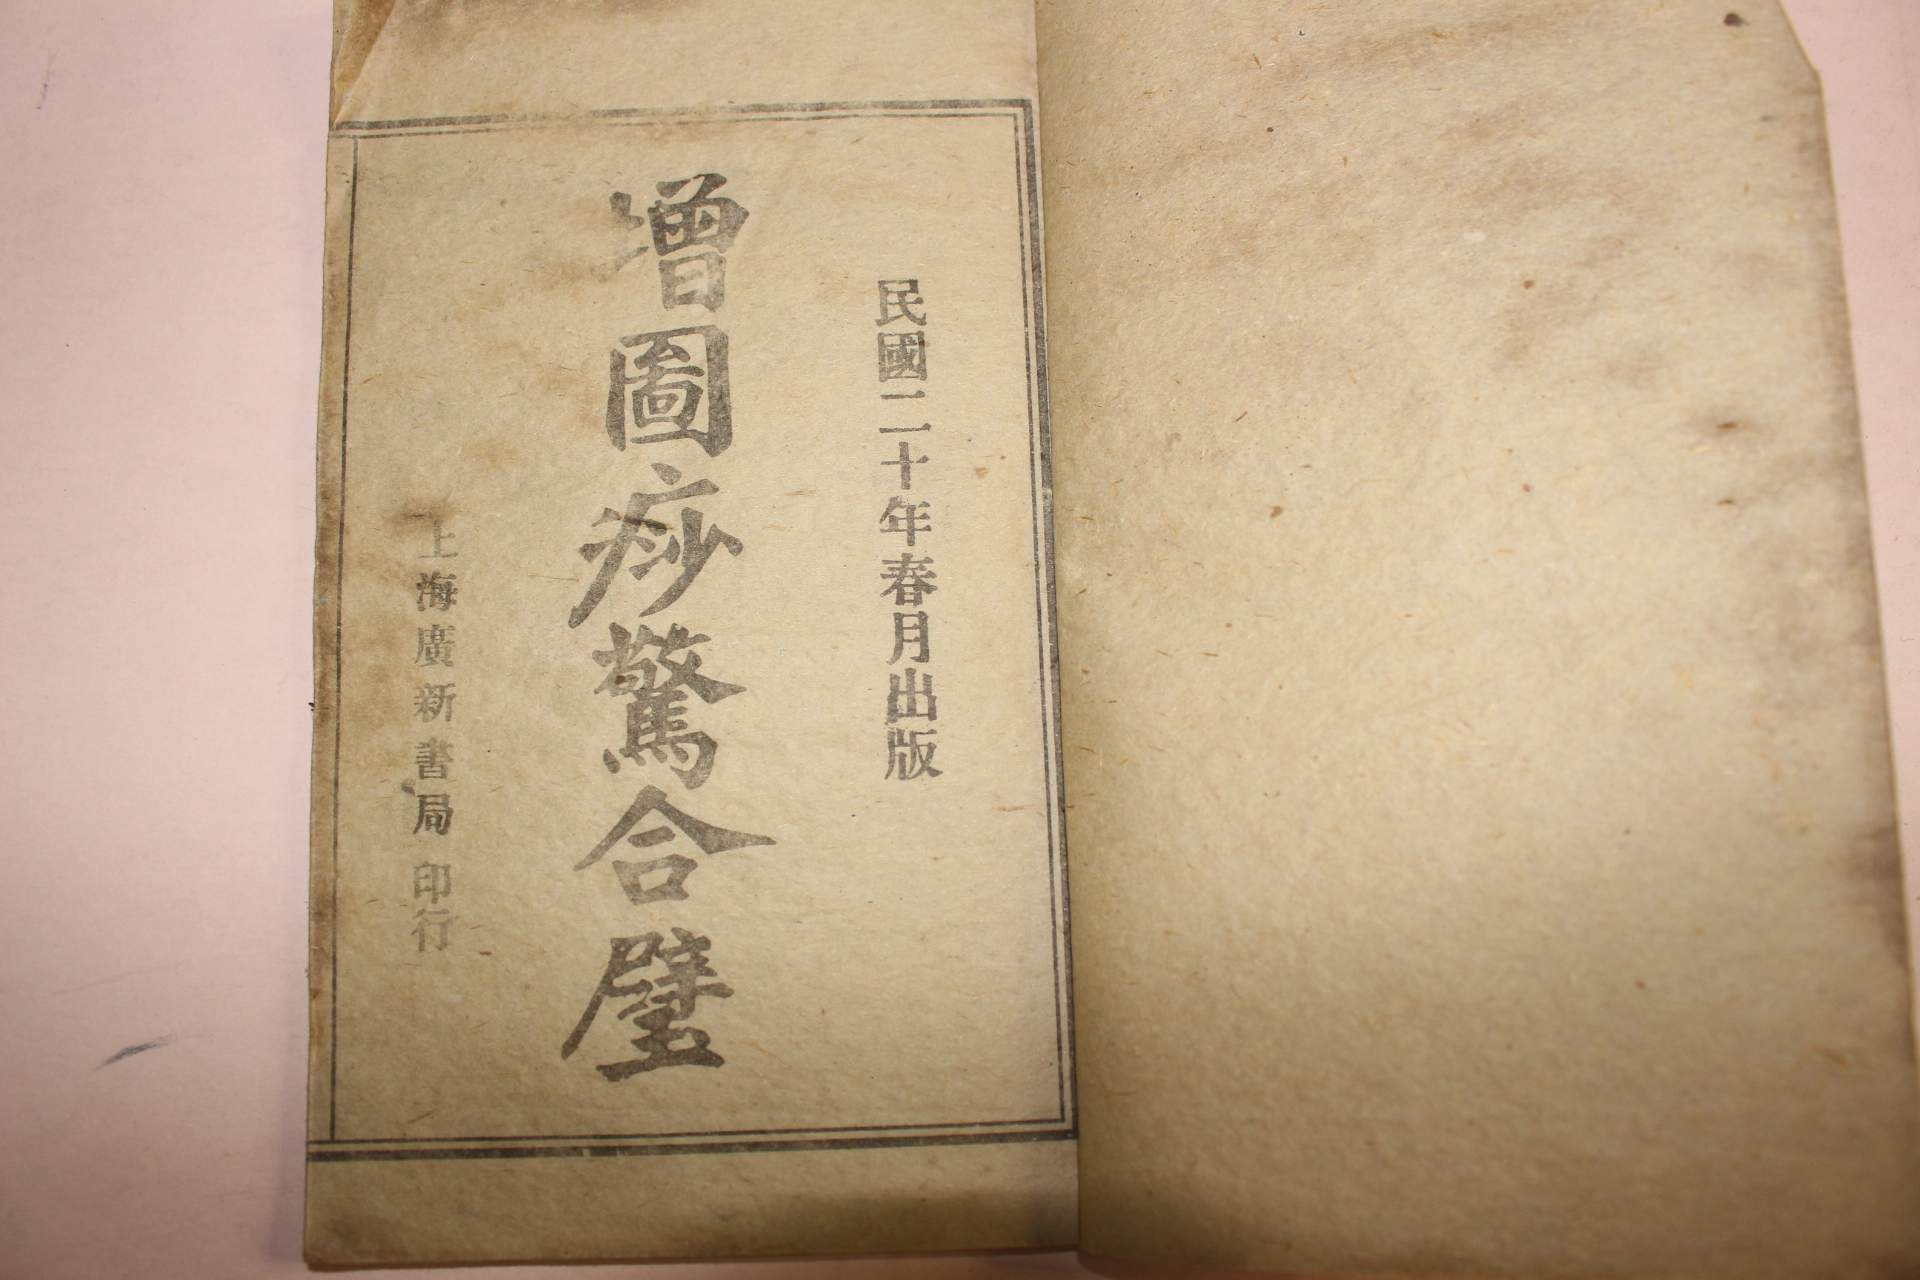 民國二十年春月出版
增圖痧驚合璧
上海廣新書局印行